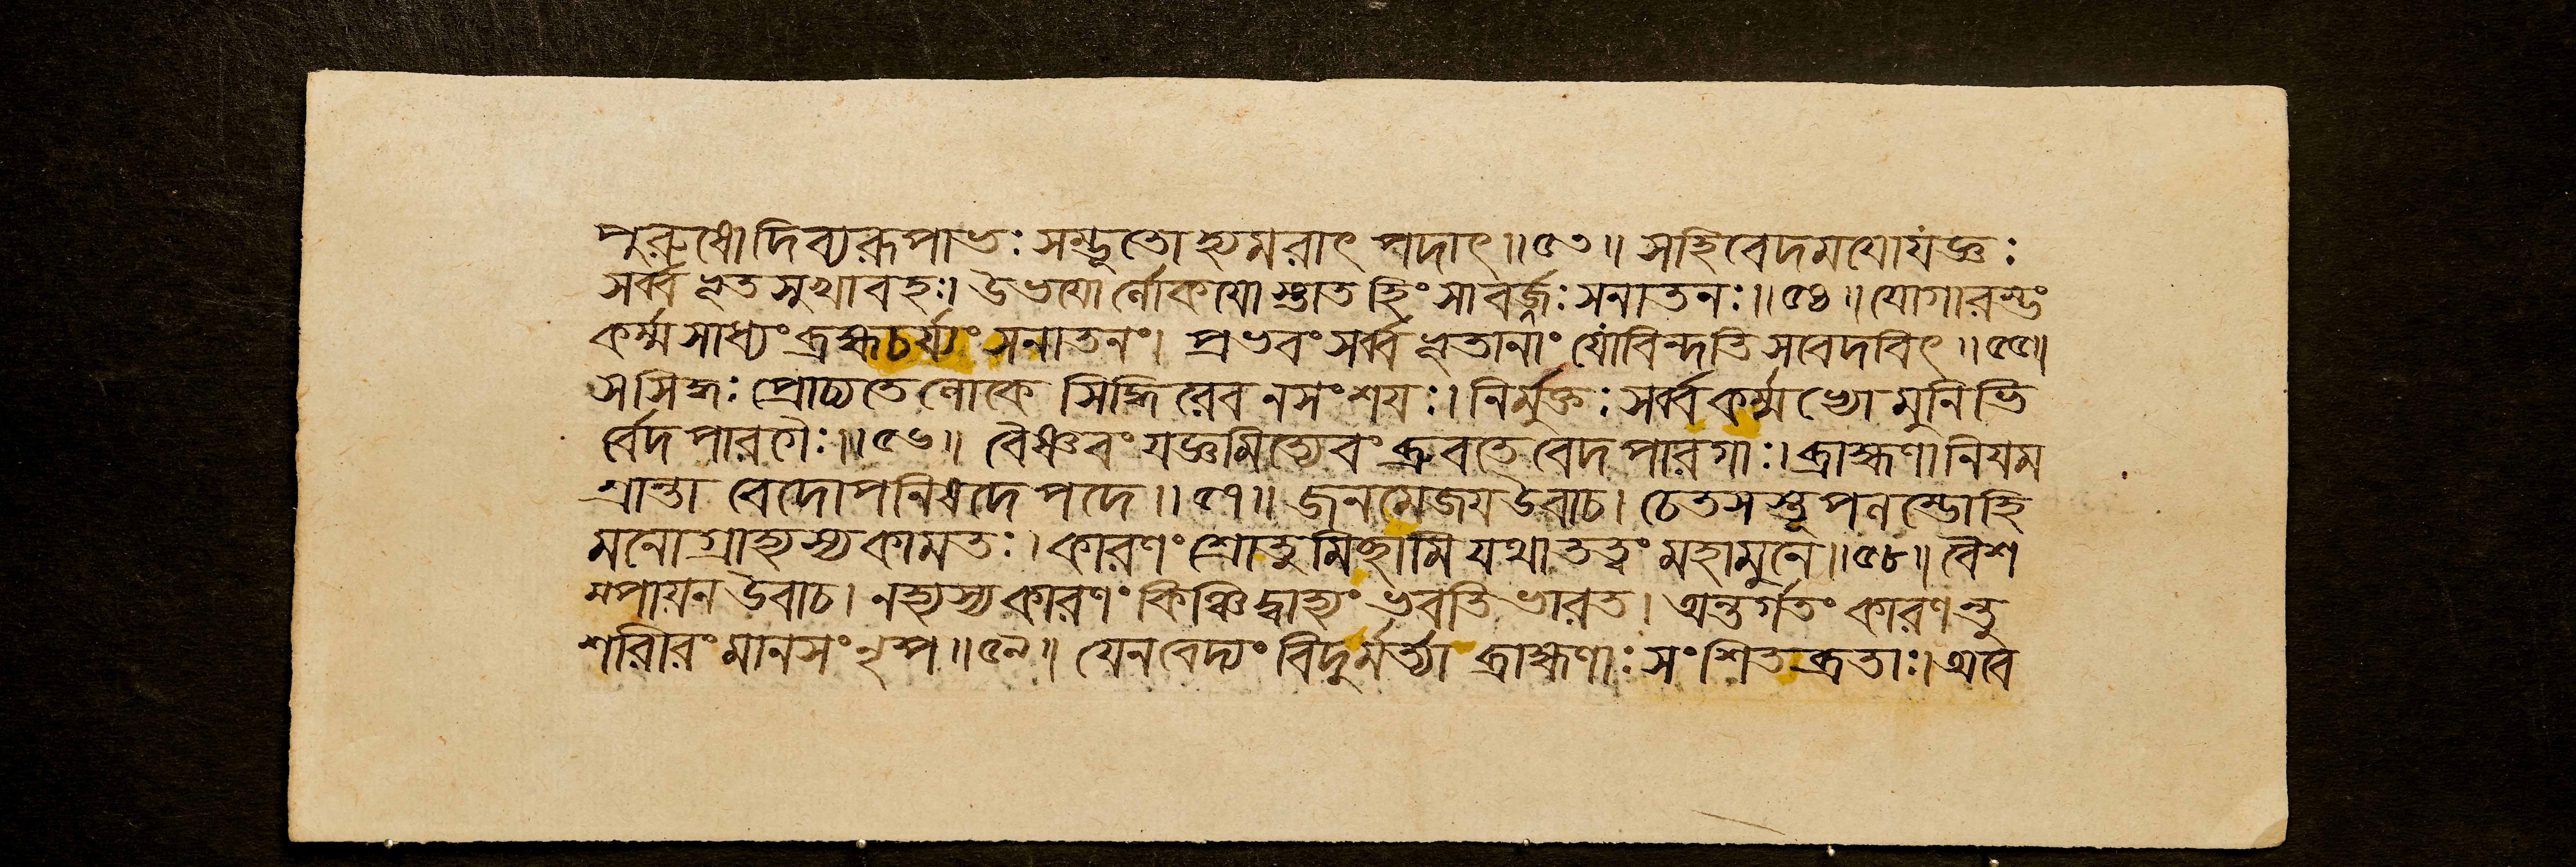 পুরুষোদিব্যরূপাভঃ সম্ভূতোহ্যমরাৎ পদাৎ॥৫৩॥ সহিবেদময়োযজ্ঞঃ
সর্ব্বভূতসুখাবহঃ। উভয়োর্লোকয়োস্তাত হিংসাবর্জ্জঃসনাতনঃ॥৫৪॥যোগারম্ভং
কর্ম্মসাধ্যং ব্রহ্মচর্য্যং সনাতনং। প্রভবংসর্ব্বভূতানাং যোবিন্দতি সবেদবিৎ॥৫৫॥
সসিদ্ধঃ প্রোচ্যতেলোকে সিদ্ধিরেব নসংশয়ঃ। নির্মুক্তঃ সর্ব্বকর্ম্মভ্যো মুনিভি
র্বেদপারগৈঃ॥৫৬॥ বৈষ্ণবং যজ্ঞমিত্যেবং ব্রুবতে বেদপারগাঃ।ব্রাহ্মণানিয়ম
শ্রান্তা বেদোপনিষদে পদে॥৫৭॥ জনমেজয়উবাচ। চেতসস্তূপলম্ভোহি
মনোগ্রাহ্যস্যকামতঃ।কারণং শ্রোতুমিচ্ছামি যথাতত্ত্বং মহামুনে॥৫৮॥ বৈশ
ম্পায়নউবাচ। নহ্যস্যকারণং কিঞ্চিদ্বাহ্যং ভবতি ভারত। অন্তর্গতং কারণন্তু
শরীরং মানসং নৃপ॥৫৯॥ যেনবেদ্যং বিদুর্মর্ত্যা ব্রাহ্মণাঃ সংশিতব্রতাঃ।অবে